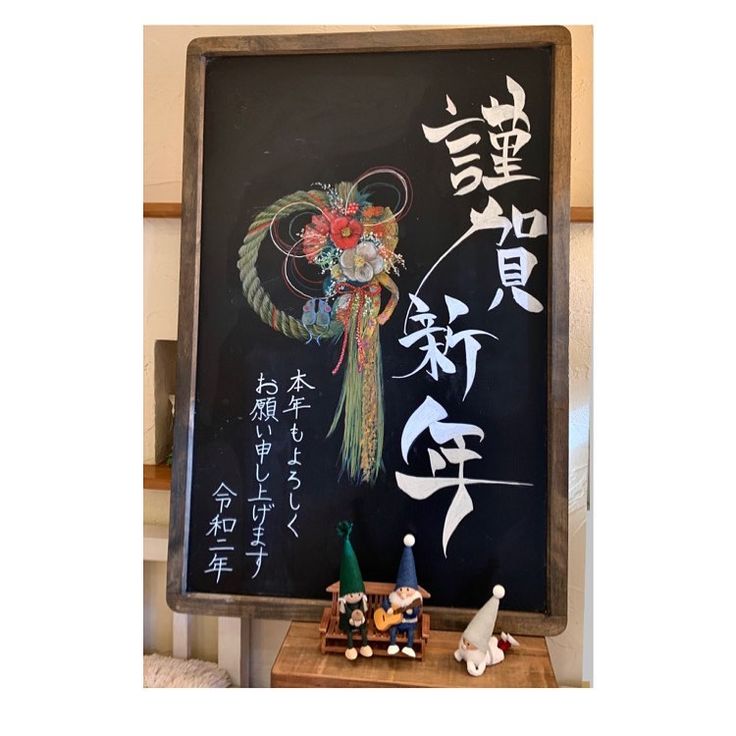 謹賀新年
本年もよろしく
お願い申し上げます
令和二年